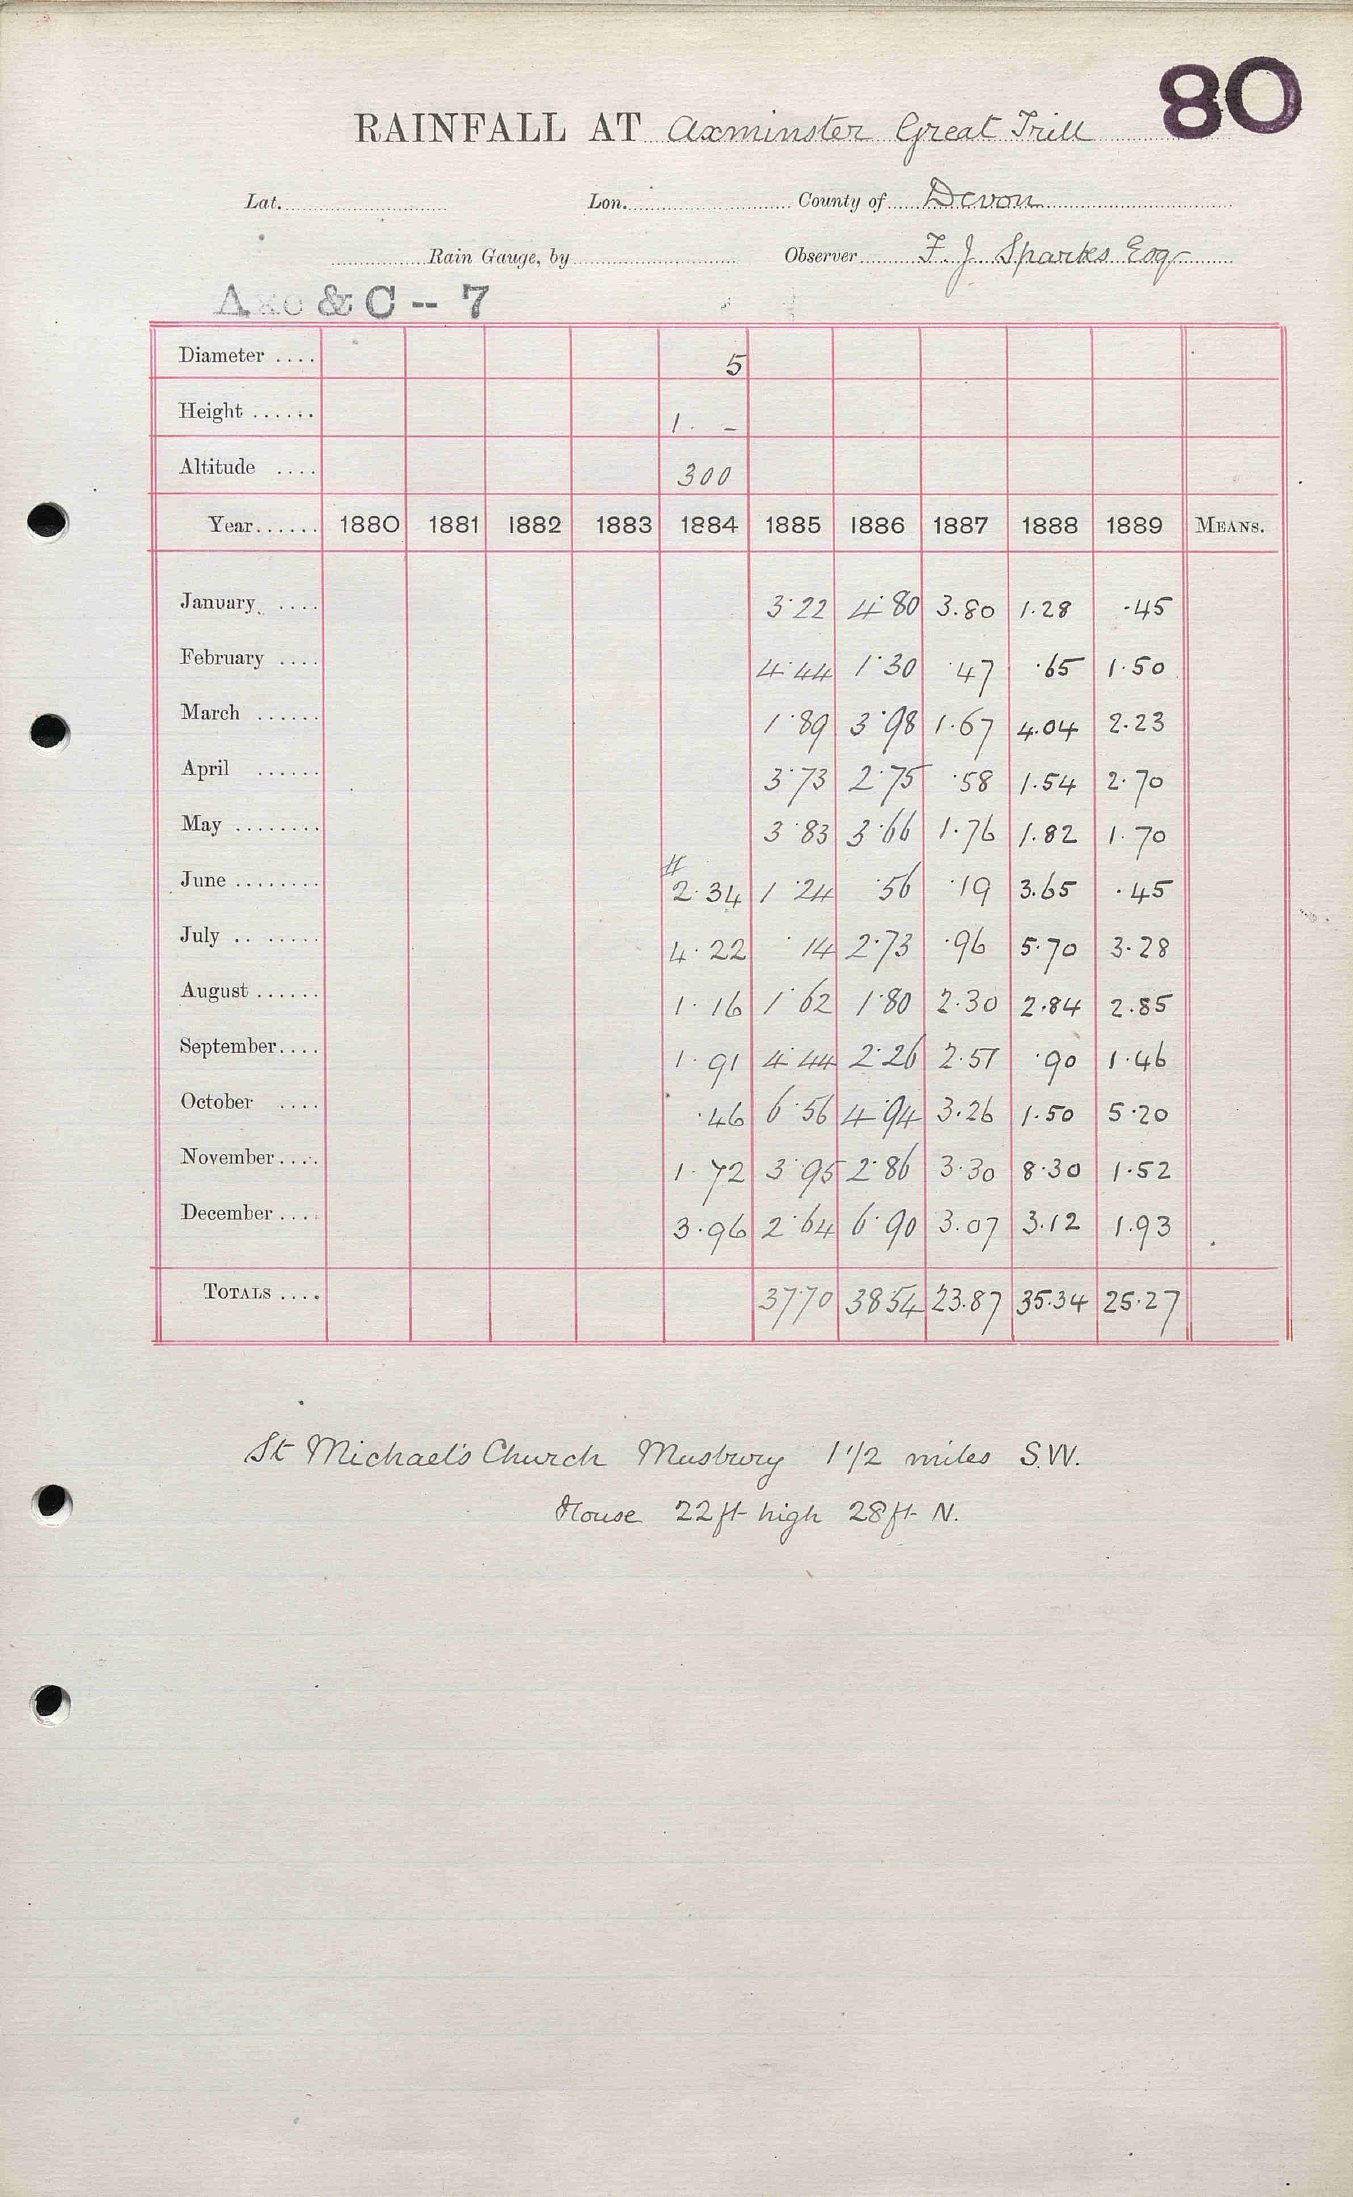 80
RAINFALL AT Axminster Great Trill
Lat. Lon. County of Devon
Rain Gauge, by Observer F. J. Sparks Esq
Axe & C -- 7
Diameter .... 5
Height ...... 1. -
Altitude .... 300
Year...... 1880 1881 1882 1883 1884 1885 1886 1887 1888 1889 MEANS.
January .... 3.22 4.80 3.80 1.28 .45
February .... 4.44 1.30 .47 .65 1.50
March ...... 1.89 3.98 1.67 4.04 2.23
April ...... 3.73 2.75 .58 1.54 2.70
May ........ 3.83 3.66 1.76 1.82 1.70
#
June ........ 2.34 1.24 .56 .19 3.65 .45
July .. ..... 4.22 .14 2.73 .96 5.70 3.28
August ...... 1.16 1.62 1.80 2.30 2.84 2.85
September.... 1.91 4.44 2.26 2.51 .90 1.46
October .... .46 6.56 4.94 3.26 1.50 5.20
November.... 1.72 3.95 2.86 3.30 8.30 1.52
December .... 3.96 2.64 6.90 3.07 3.12 1.93
TOTALS .... 37.70 38.54 23.87 35.34 25.27
St Michael's Church Musbury 1 1/2 miles S.W.
House 22ft high 28ft N.